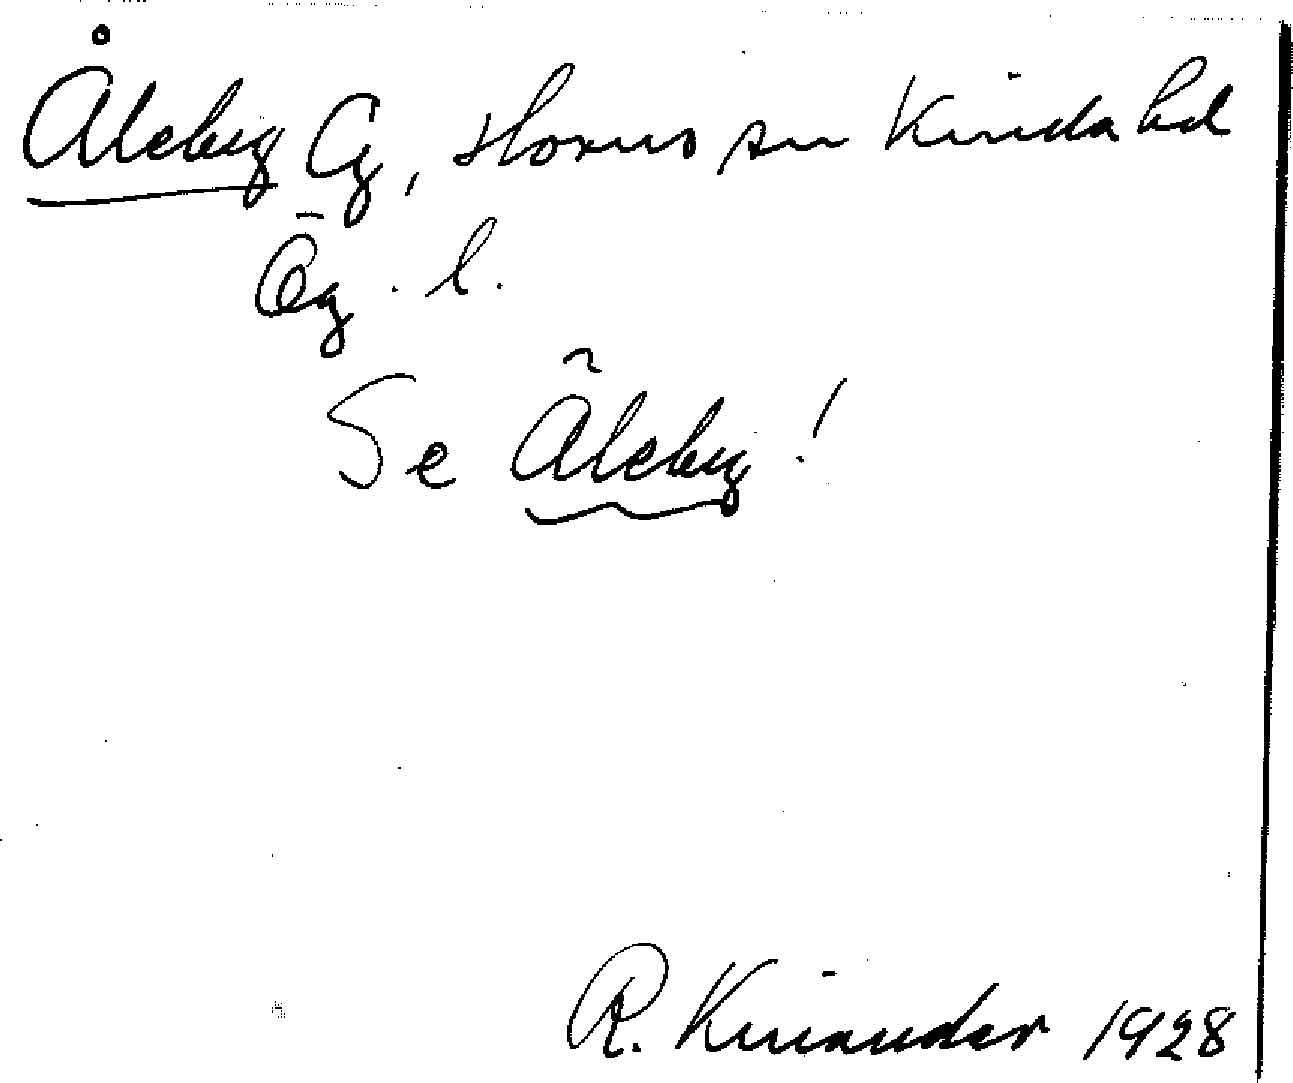 Åleby , Horns sn Kinda hd
Ög. l.
Se Äleby!
R. Kinander 1928